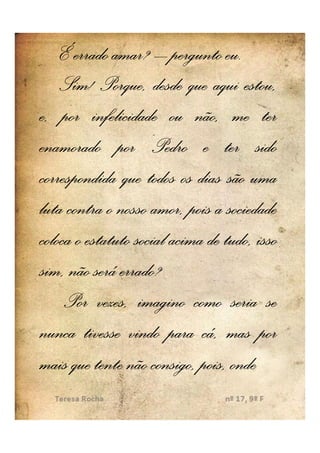 É errado amar? — pergunto eu.
Sim! Porque, desde que aqui estou,
e, por infelicidade ou não, me ter
enamorado por Pedro e ter sido
correspondida que todos os dias são uma
luta contra o nosso amor, pois a sociedade
coloca o estatuto social acima de tudo, isso
sim, não será errado?
Por vezes, imagino como seria se
nunca tivesse vindo para cá, mas por
mais que tente não consigo, pois, onde
Teresa Rocha nº 17, 9º F